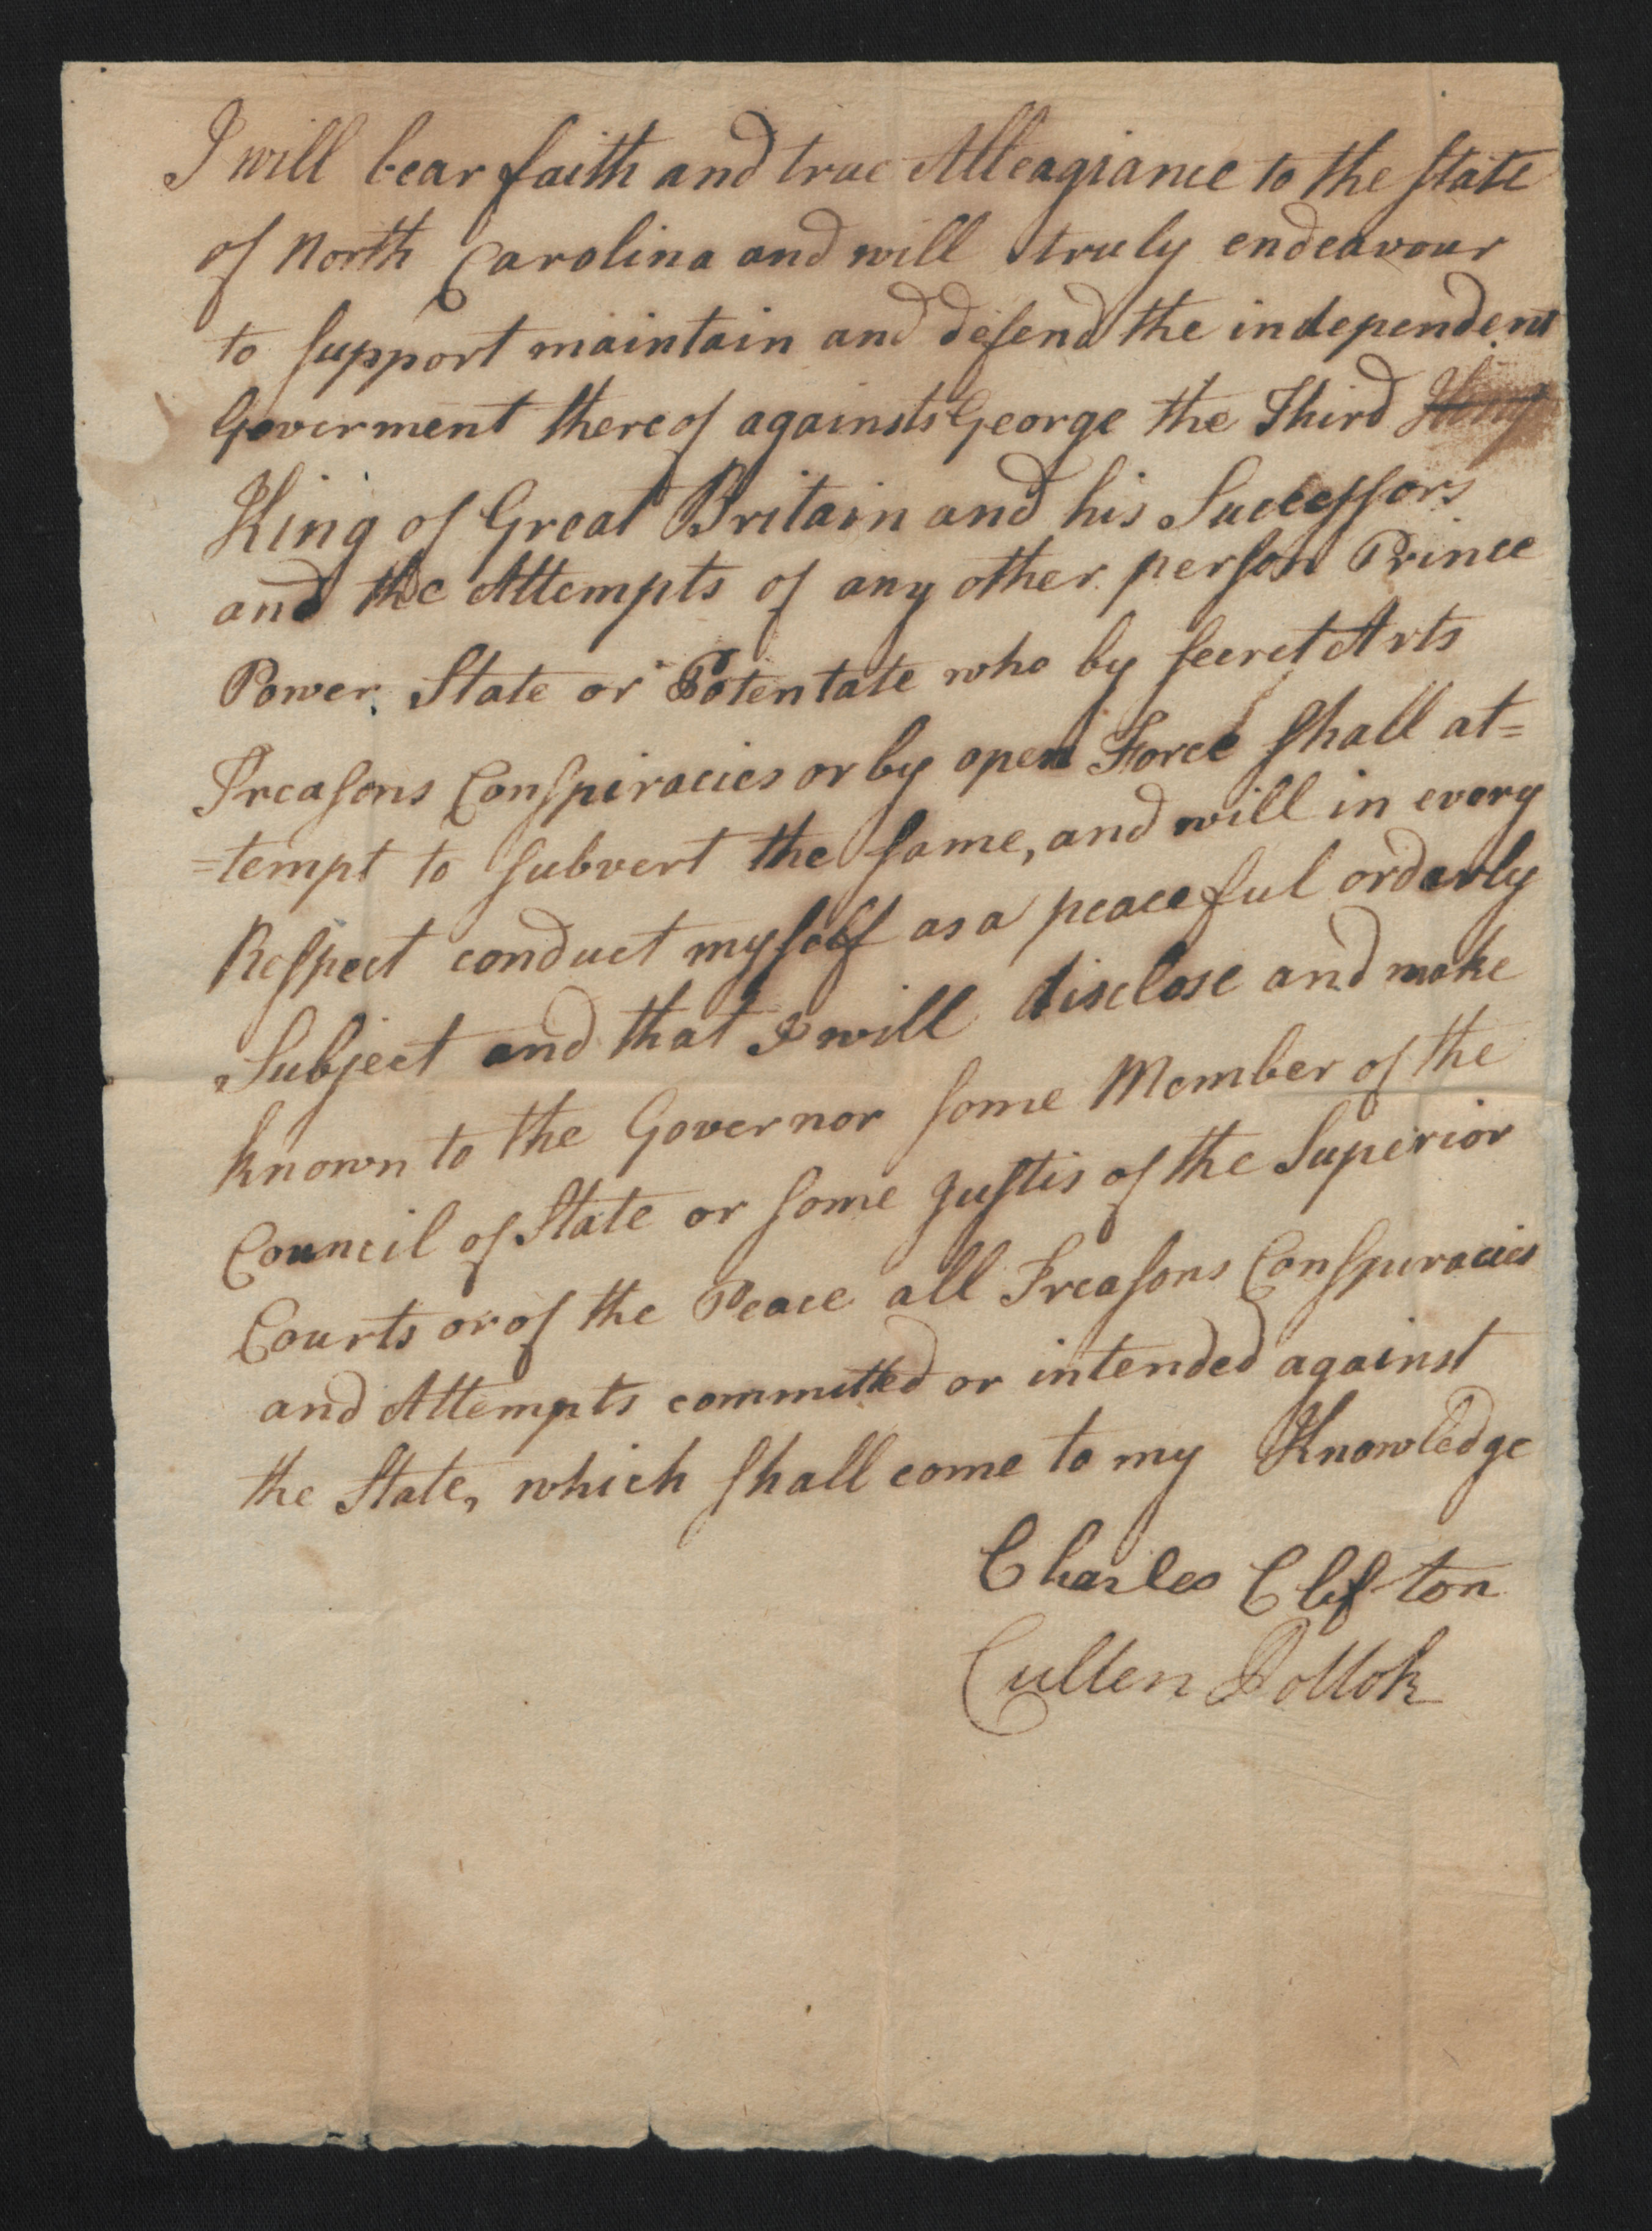 I will bear faith and true Alleagiance to the State
of North Carolina and will truly endeavour
to support maintain and defend the independent
Goverment thereof against George the Third King
King of Great Britain and his Successors
and the Attempts of any other person Prince
Power State or Potentate who by secret Arts
Treasons Conspiracies or by open Force shall at=
=tempt to subvert the same, and will in every
Respect conduct myself as a peaceful orderly
Subject and that I will disclose and make
known to the Governor some Member of the
Council of State or some Justis of the Superior
Courts or of the Peace all Treasons Conspiracies
and Attempts committed or intended against
the State, which shall come to my Knowledge
Charles Clifton
Cullen Pollok